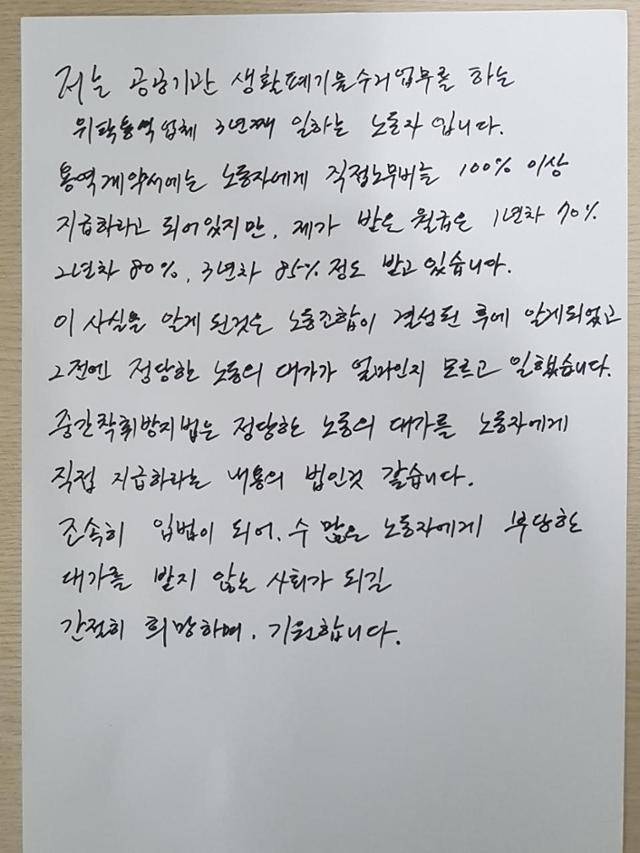 저는 공공기관 생활폐기물수거업무를 하는
위탁용역업체 3년째 일하는 노동자 입니다.
용역계약서에는 노동자에게 직접노무비를 100% 이상
지급하라고 되어있지만, 제가 받은 월급은 1년차 70%
2년차 80%, 3년차 85% 정도 받고 있습니다.
이 사실을 알게 된것은 노동조합이 결성된 후에 알게되었고
그전엔 정당한 노동의 대가가 얼마인지 모르고 일했습니다.
중간착취방지법은 정당한 노동의 대가를 노동자에게
직접 지급하라는 내용의 법인것 같습니다.
조속히 입법이 되어, 수 많은 노동자에게 부당한
대가를 받지 않는 사회가 되길
간절히 희망하며, 기원합니다.